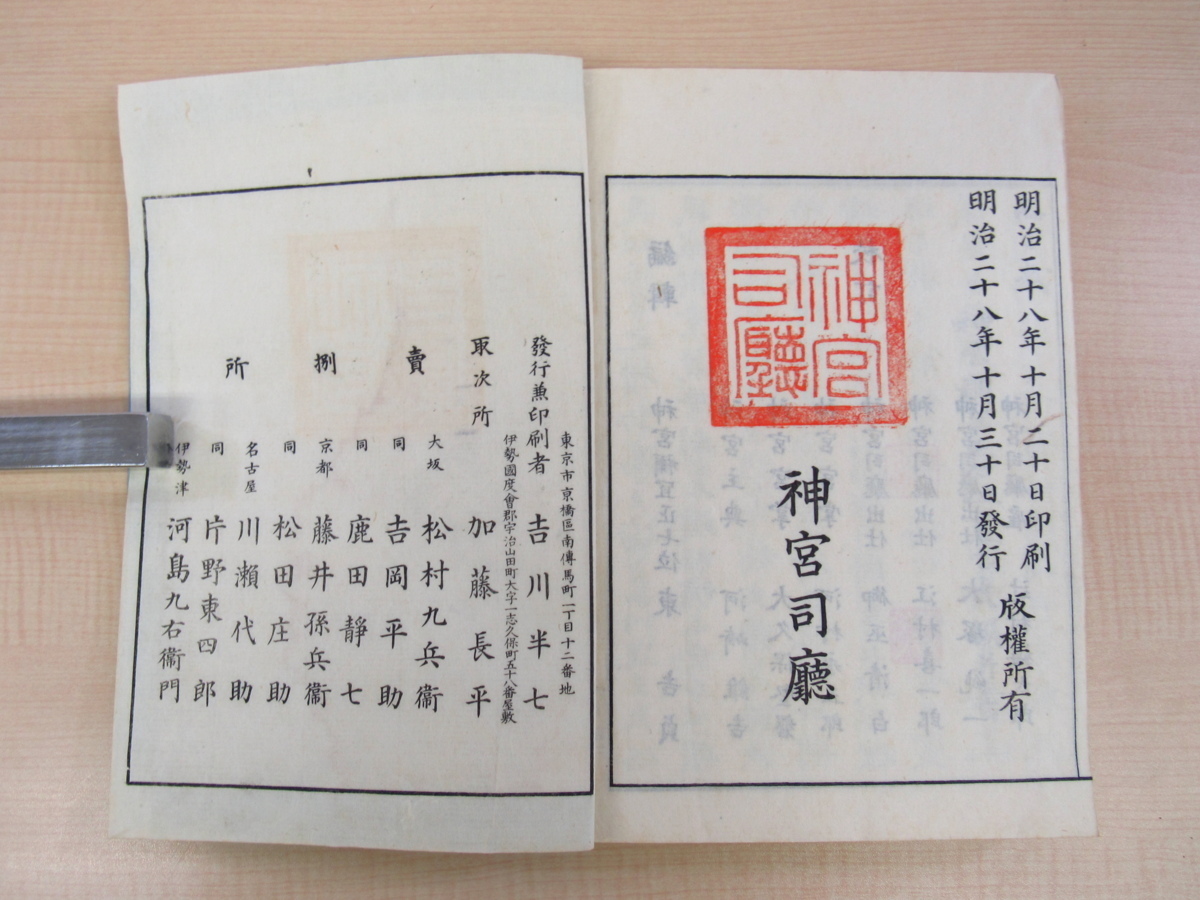 明治二十八年十月二十日印刷
明治二十八年十月三十日發行
版權所有
神宮司廳
神宮司廳
東京市京橋區南傳馬町一丁目十二番地
發行兼印刷者 吉川半七
伊勢國度會郡宇治山田町大字一志久保町五十八番屋敷
取次所 加藤長平
賣捌所
大坂 松村九兵衞
同 吉岡平助
同 鹿田靜七
京都 藤井孫兵衞
同 松田庄助
名古屋 川瀨代助
同 片野東四郎
伊勢津 河島九右衞門